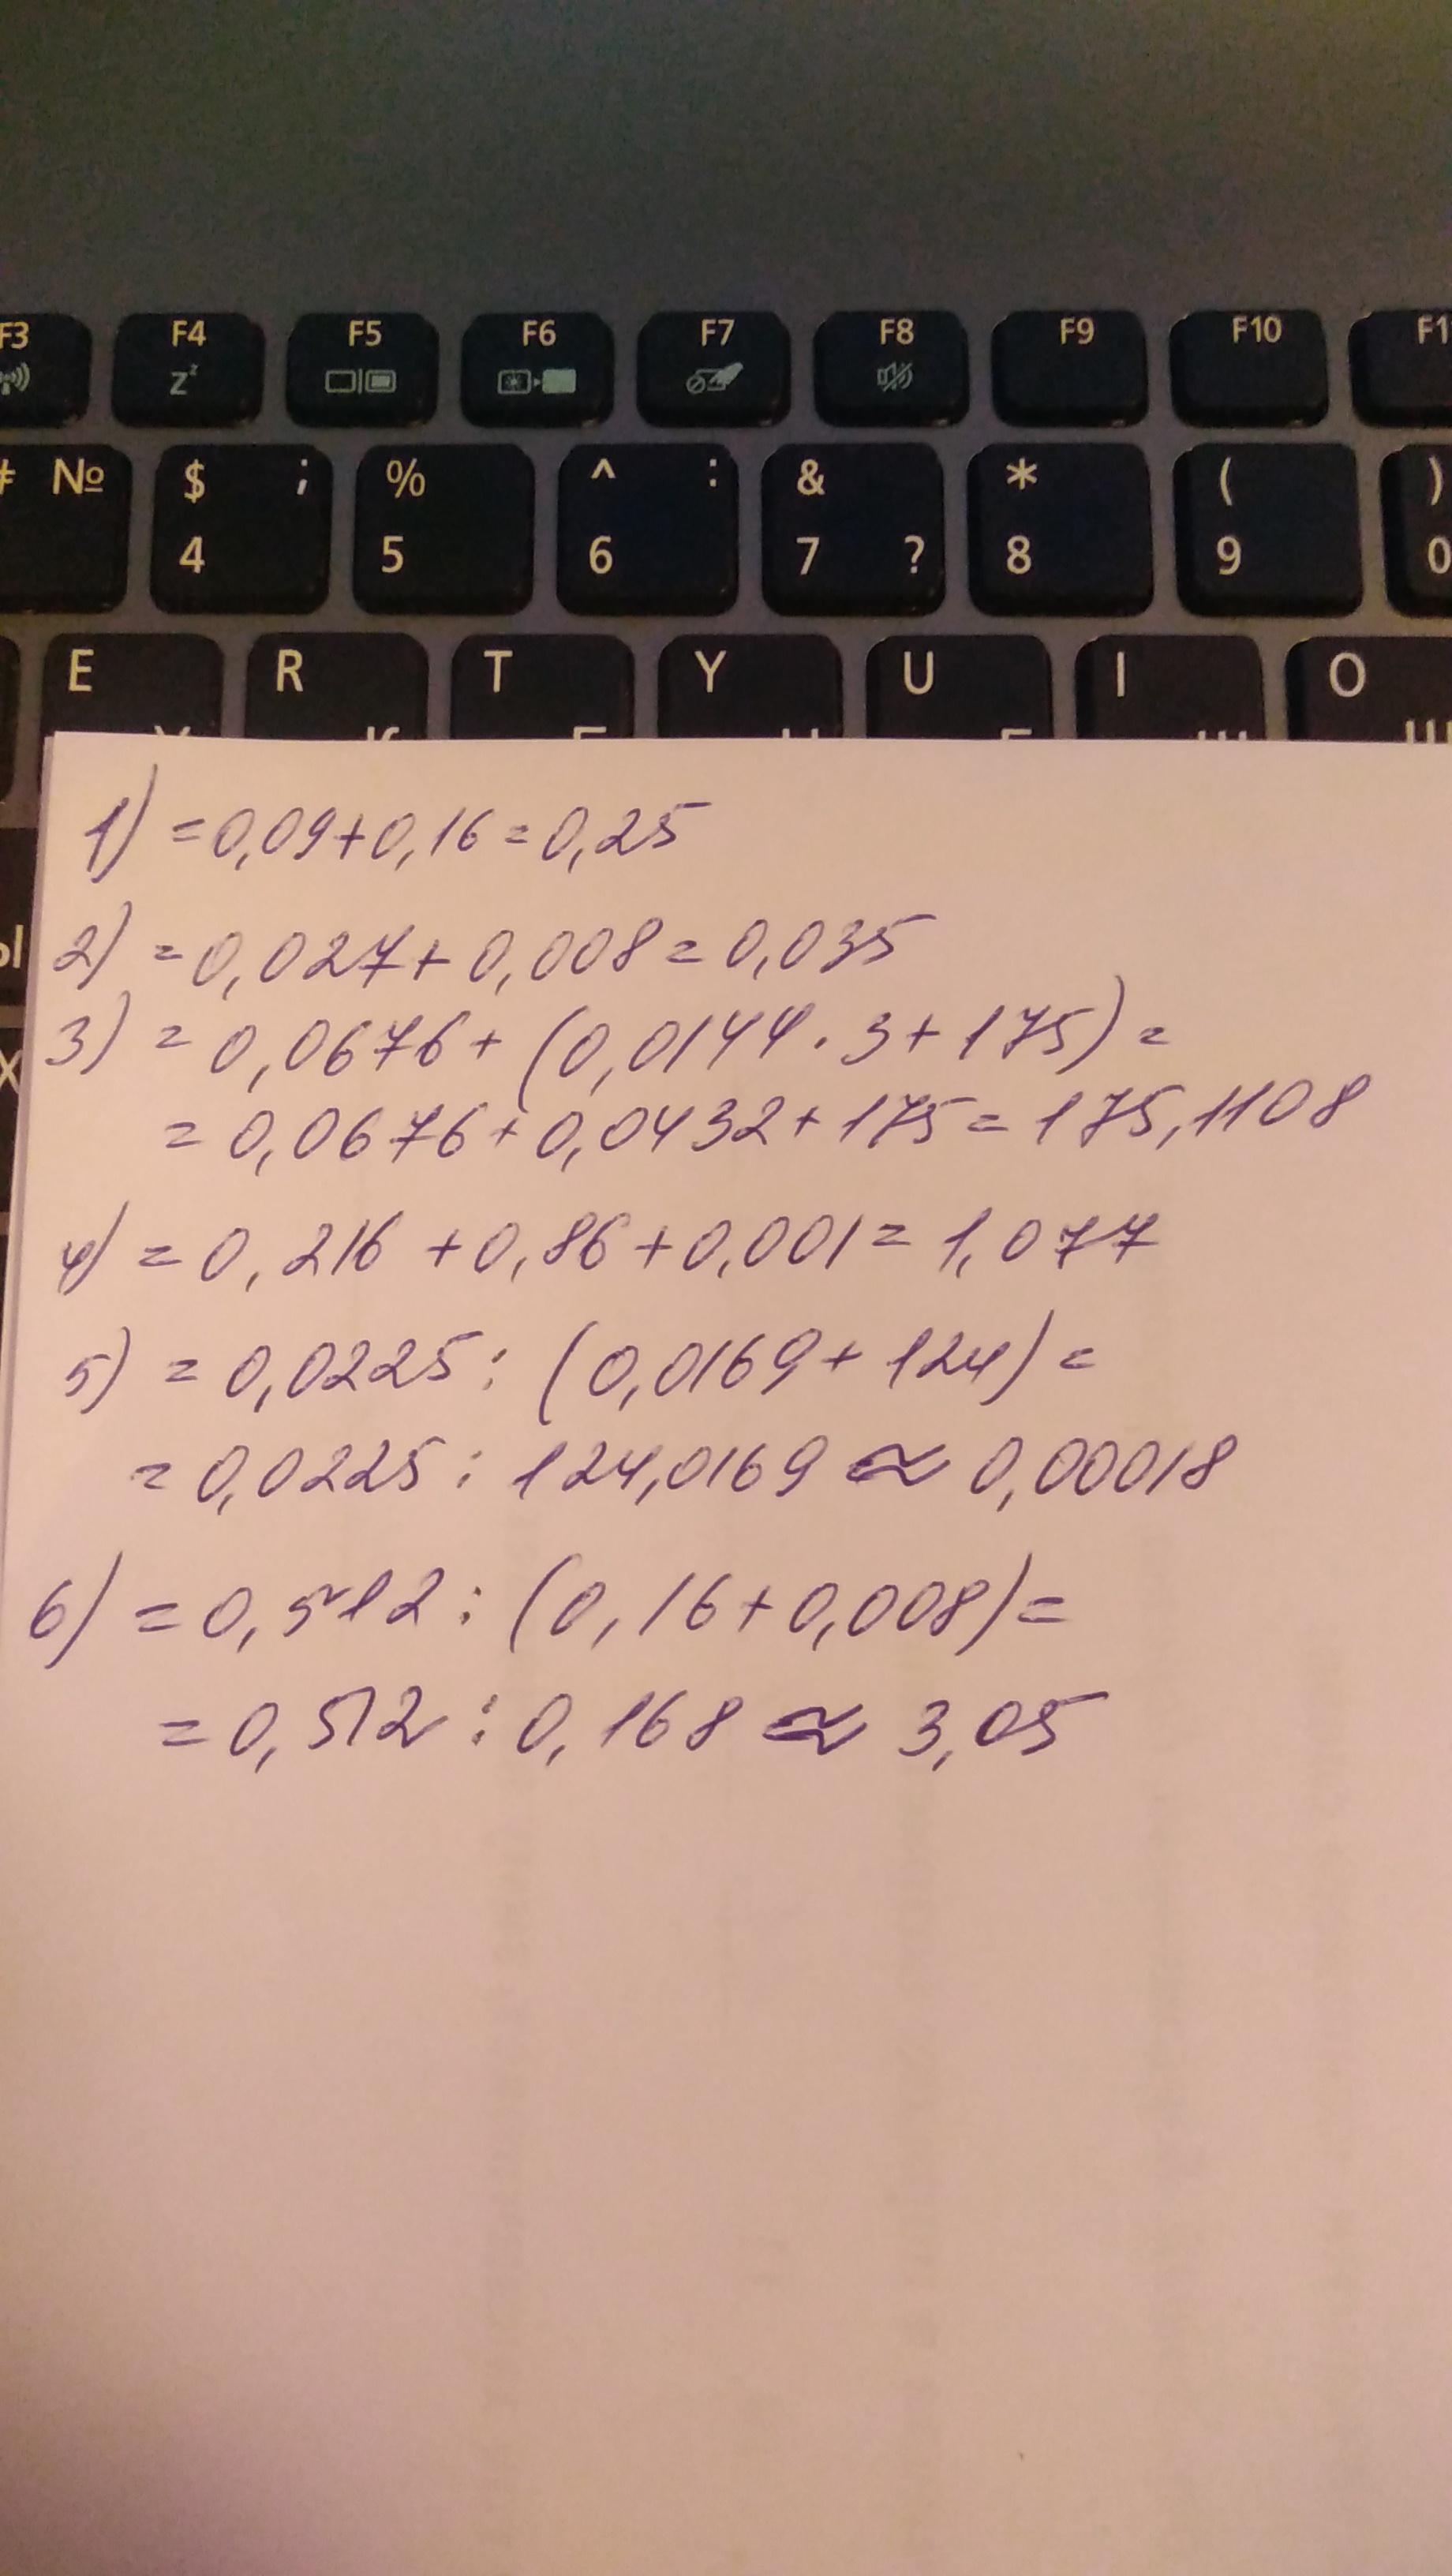 F3 F4 F5 F6 F7 F8 F9 F10 F1
zᶻ
# № $ ; % ^ : & * ( )
4 5 6 7 ? 8 9 0
E R T Y U I O
1) =0,09+0,16=0,25
2) =0,027+0,008=0,035
3) = 0,0676+(0,0144·3+175)=
=0,0676+0,0432+175=175,1108
4) =0,216+0,86+0,001=1,077
5) =0,0225:(0,0169+124)=
=0,0225:124,0169≈0,00018
6) =0,512:(0,16+0,008)=
=0,512:0,168≈3,05